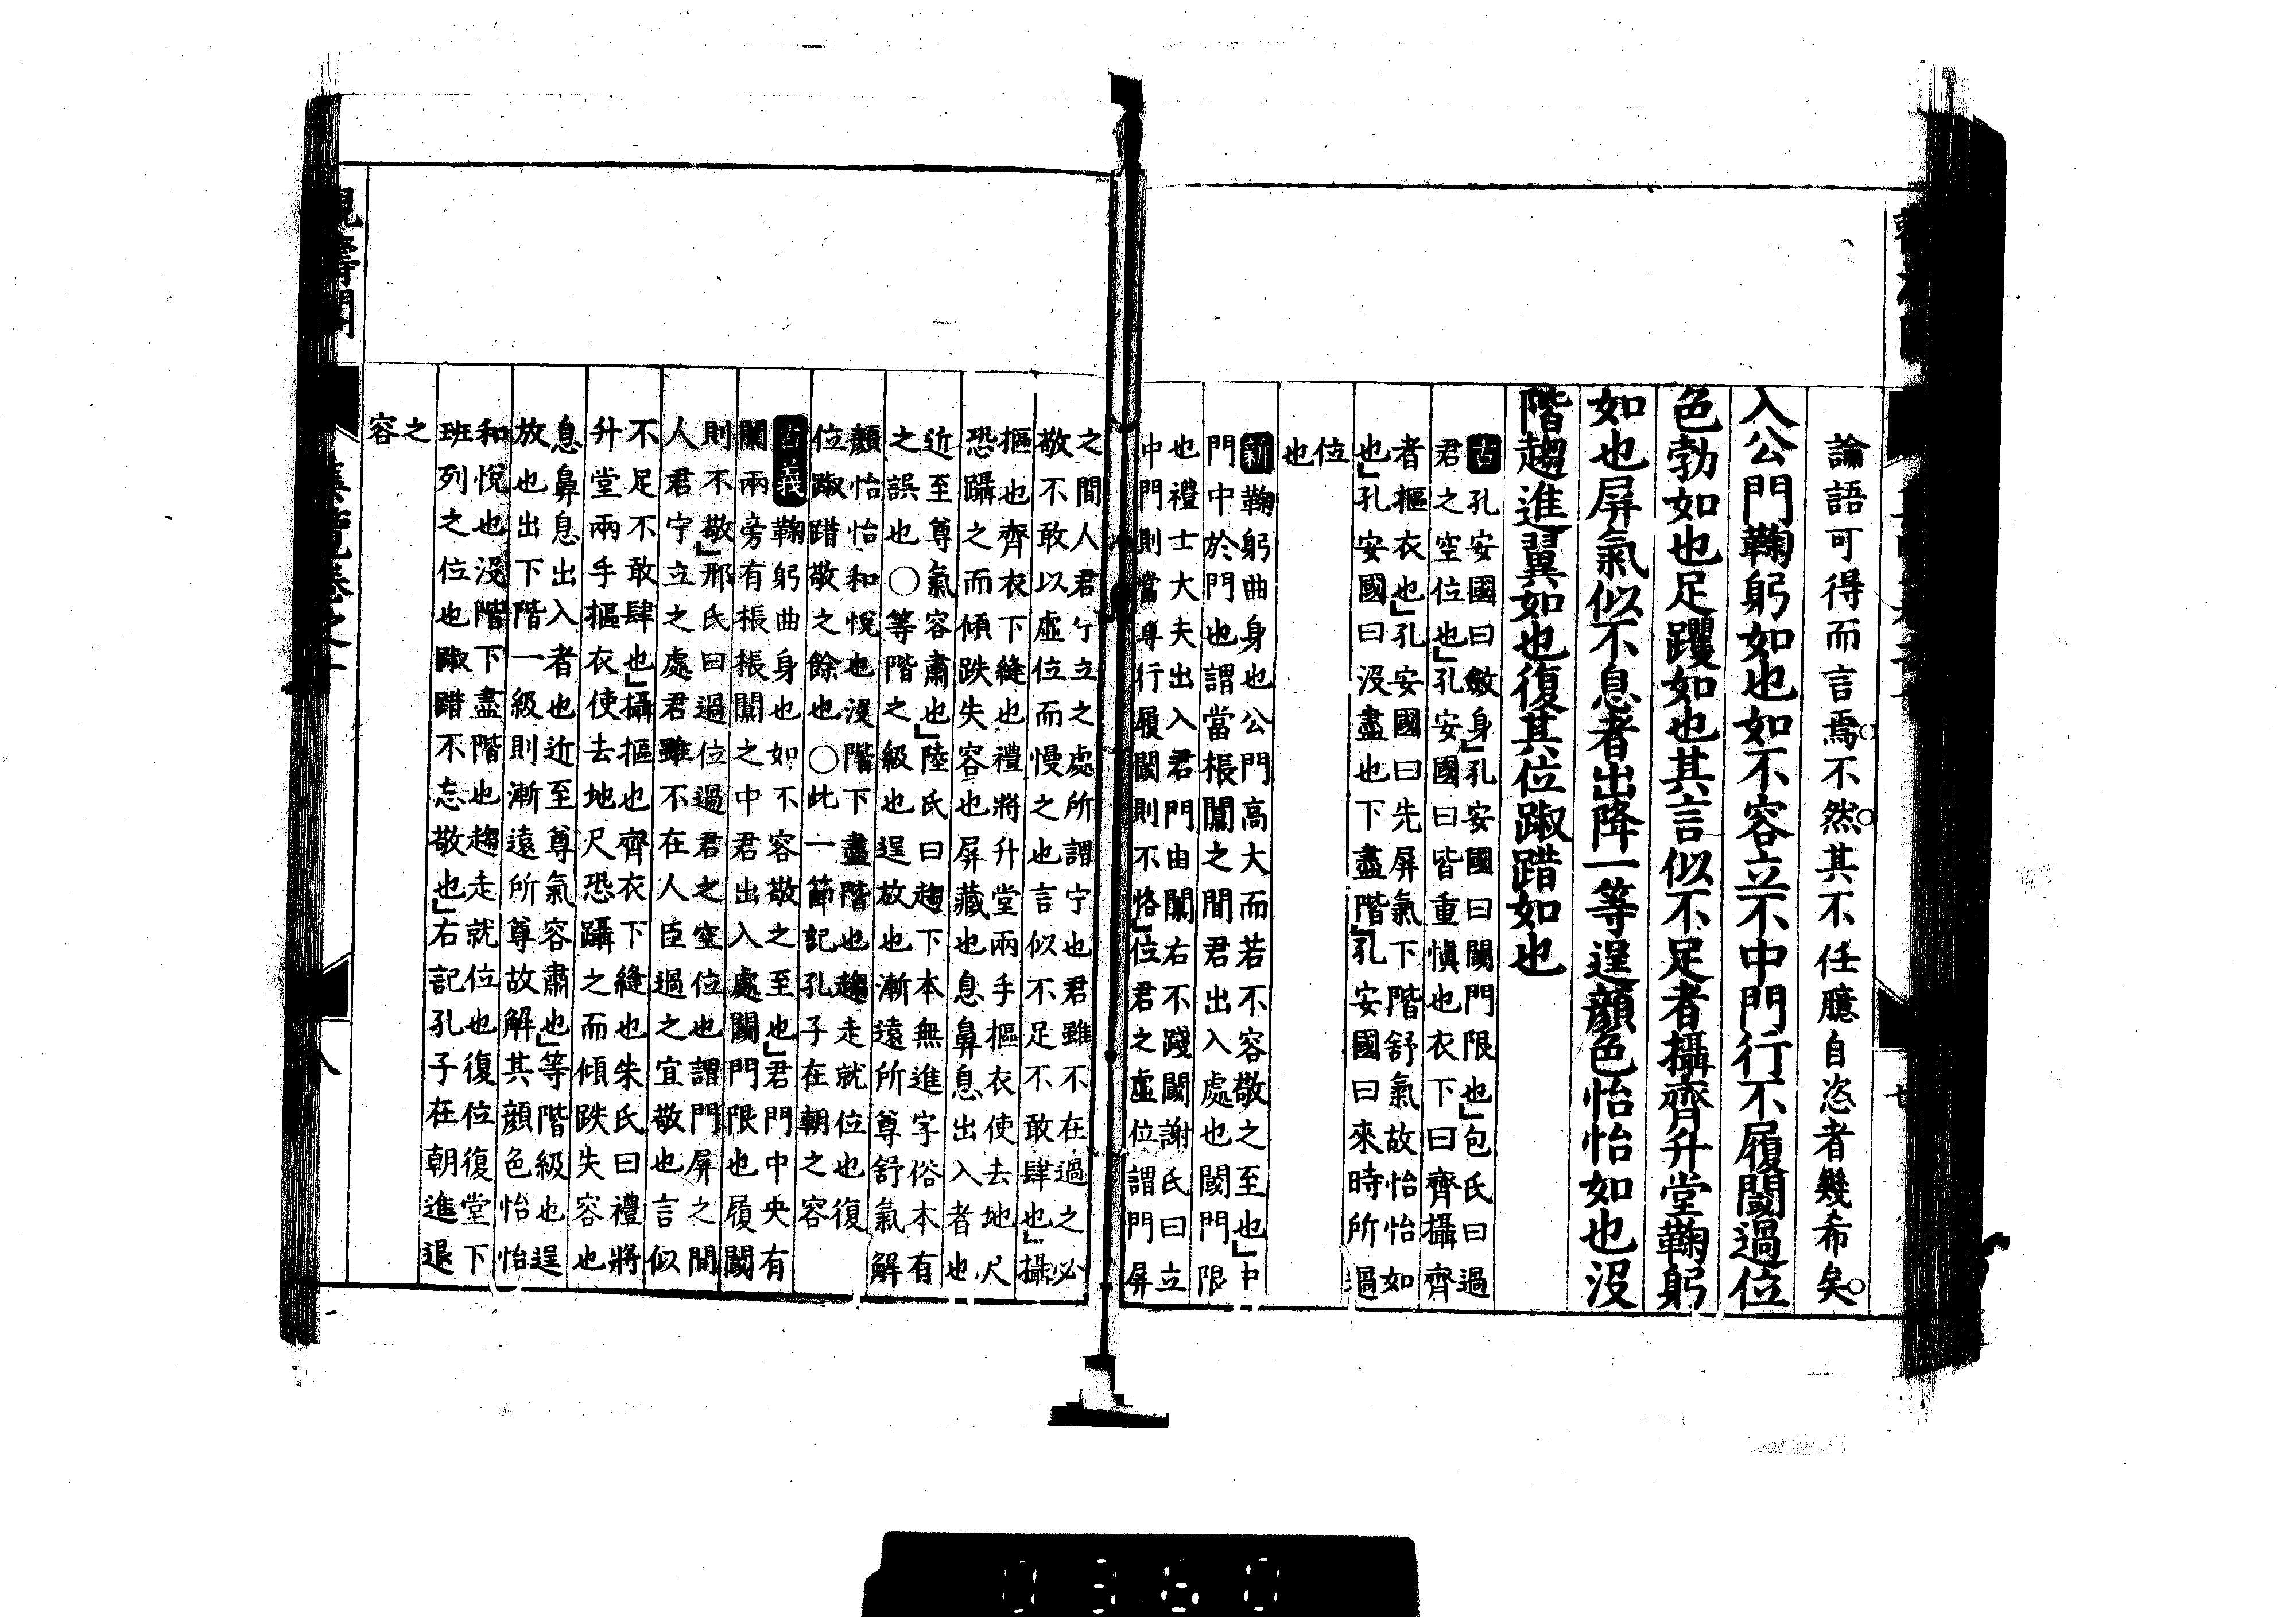 論語可得而言焉不然其不任臆自恣者幾希矣
入公門鞠躬如也如不容立不中門行不履閾過位
色勃如也足躩如也其言似不足者攝齊升堂鞠躬
如也屏氣似不息者出降一等逞顔色怡怡如也沒
階趨進翼如也復其位踧踖如也
古孔安國曰斂身」孔安國曰閾門限也」包氏曰過
君之空位也」孔安國曰皆重愼也衣下曰齊攝齊
者摳衣也」孔安國曰先屏氣下階舒氣故怡怡如
也」孔安國曰沒盡也下盡階」孔安國曰來時所過
位
也
新鞠躬曲身也公門高大而若不容敬之至也」中
門中於門也謂當棖闑之間君出入處也閾門限
也禮士大夫出入君門由闑右不踐閾謝氏曰立
中門則當尊行履閾則不恪」位君之虛位謂門屏
之間人君宁立之處所謂宁也君雖不在過之必
敬不敢以虛位而慢之也言似不足不敢肆也」攝
摳也齊衣下縫也禮將升堂兩手摳衣使去地尺
恐躡之而傾跌失容也屏藏也息鼻息出入者也
近至尊氣容肅也」陸氏曰趨下本無進字俗本有
之誤也○等階之級也逞放也漸遠所尊舒氣解
顔怡怡和悅也沒階下盡階也趨走就位也復
位踧踖敬之餘也○此一節記孔子在朝之容
古義鞠躬曲身也如不容敬之至也」君門中央有
闑兩旁有棖棖闑之中君出入處閾門限也履閾
則不敬」邢氏曰過位過君之空位也謂門屏之間
人君宁立之處君雖不在人臣過之宜敬也言似
不足不敢肆也」攝摳也齊衣下縫也朱氏曰禮將
升堂兩手摳衣使去地尺恐躡之而傾跌失容也
息鼻息出入者也近至尊氣容肅也」等階級也逞
放也出下階一級則漸遠所尊故解其顔色怡怡
和悅也沒階下盡階也趨走就位也復位復堂下
班列之位也踧踖不忘敬也」右記孔子在朝進退
之
容